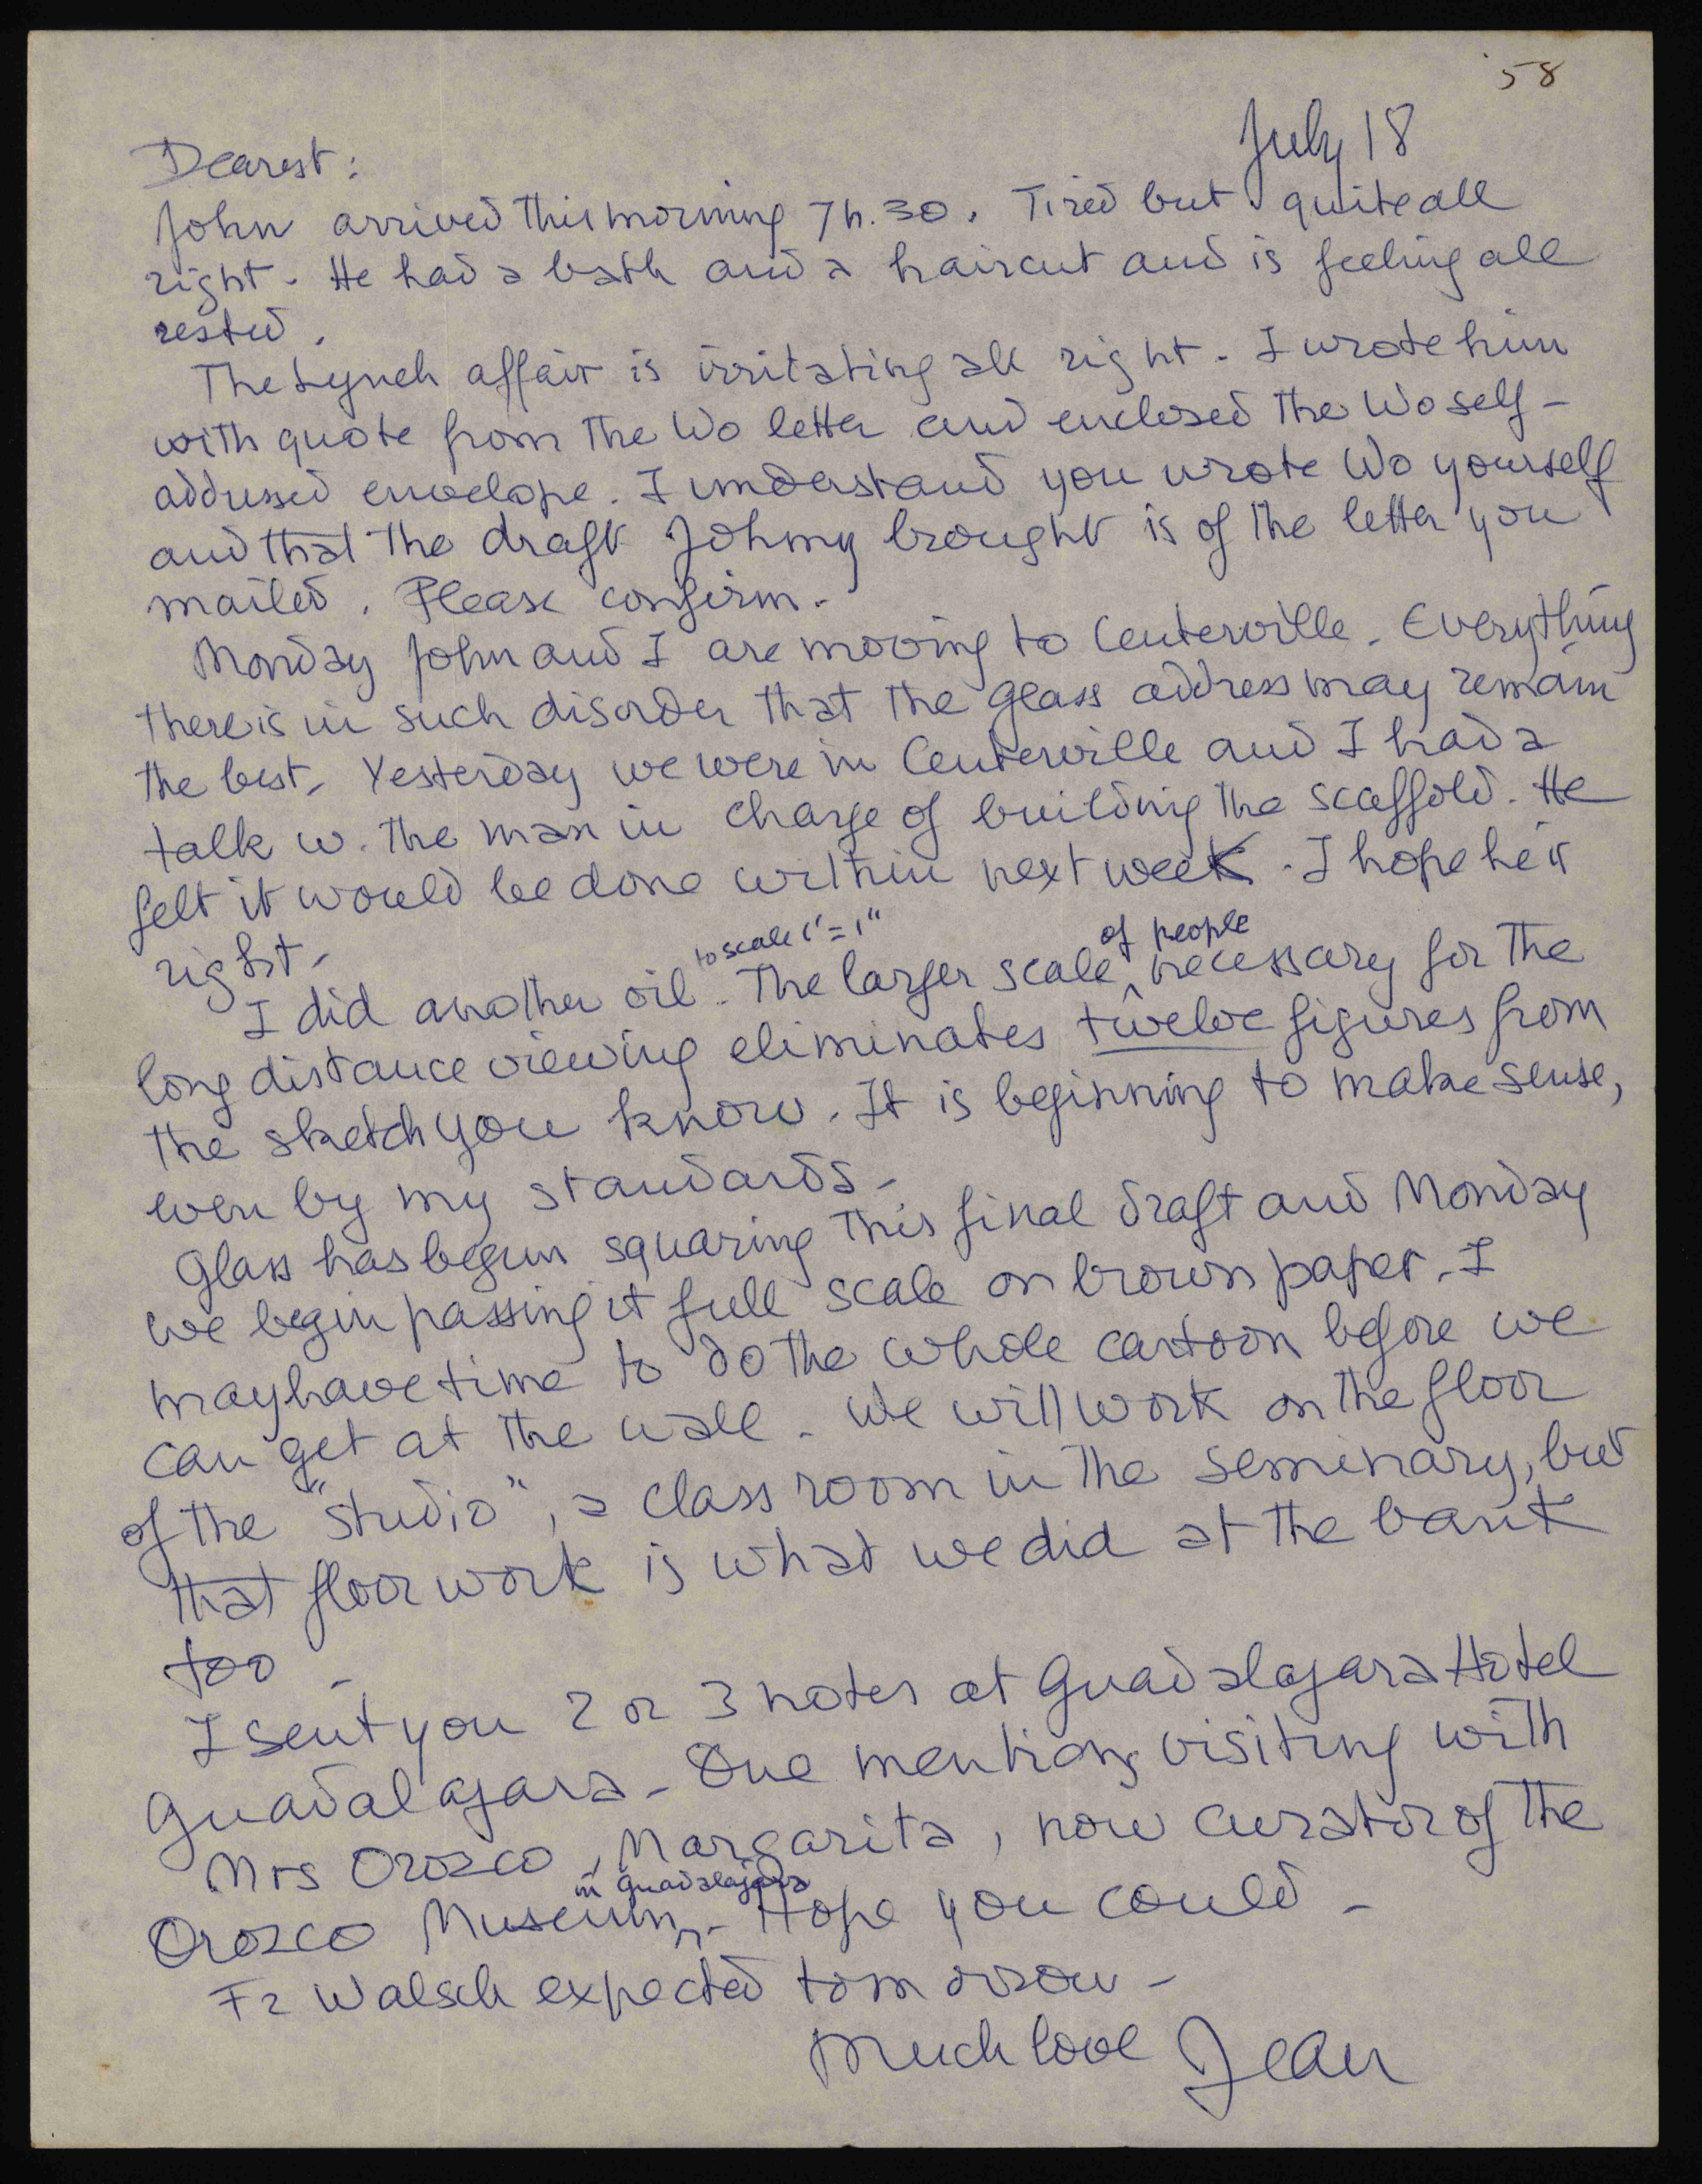 '58
July 18
Dearest:
John arrived this morning 7h.30. Tired but quite all
right. He had a bath and a haircut and is feeling all
rested.
The Lynch affair is irritating all right. I wrote him
with quote from the Wo letter and enclosed the Wo self-
addressed envelope. I understand you wrote Wo yourself
and that the draft Johnny brought is of the letter you
mailed. Please confirm.
Monday John and I are moving to Centerville. Everything
there is in such disorder that the Glass address may remain
the best. Yesterday we were in Centerville and I had a
talk w. the man in charge of building the scaffold. He
felt it would be done within next week. I hope he is
right.
to scale 1'=1"
of people
I did another oil. The larger scale necessary for the
long distance viewing eliminates twelve figures from
the sketch you know. It is beginning to make sense,
even by my standards.
Glass has begun squaring this final draft and Monday
we begin passing it full scale on brown paper. I
may have time to do the whole cartoon before we
can get at the wall. We will work on the floor
of the "studio", a class room in the seminary, but
that floor work is what we did at the bank
too.
I sent you 2 or 3 notes at Guadalajara Hotel
Guadalajara. One mentions visiting with
Mrs Orozco, Margarita, now curator of the
in Guadalajara
Orozco Museum. Hope you could.
Fr Walsch expected tomorrow.
Much love Jean